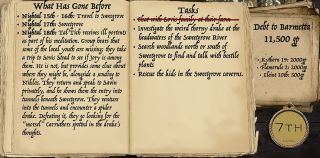 What Has Gone Before
• Nightal 15th - 16th: Travel to Sweetgrove
• Nightal 17th: Sweetgrove
• Nightal 18th: Tal'Tich receives ill portents
as part of his meditation. Group hears that
some of the local youths are missing; they take
a trip to Soris Stead to see if Jory is among
them. He is not, but provides some clue about
where they might be, alongside a sending to
Nikko. They return and speak to Savin
privately, and he shows them the entry into
tunnels beneath Sweetgrove. They venture
into the tunnels and encounter a spider
drake. Defeating it, they go looking for the
"morsel" Carruthers spotted in the drake's
thoughts.
Tasks
with Soris family at their farm
• Investigate the weird thorny drake at the
headwaters of the Sweetgrove River
• Search woodlands north or south of
Sweetgrove to find and talk with beetle
plants
• Rescue the kids in the Sweetgrove caverns.
Debt to Barmetta
11,500 gp
• Kythorn 19: 2000g
• Flamerule 2: 1000g
• Eleint 10th: 500g
7TH